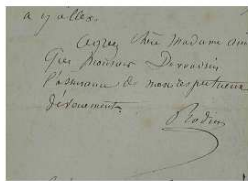 à y aller.
Agréez Chère Madame ainsi
que Monsieur
l'assurance de mon respectueux
dévouement
Rodin